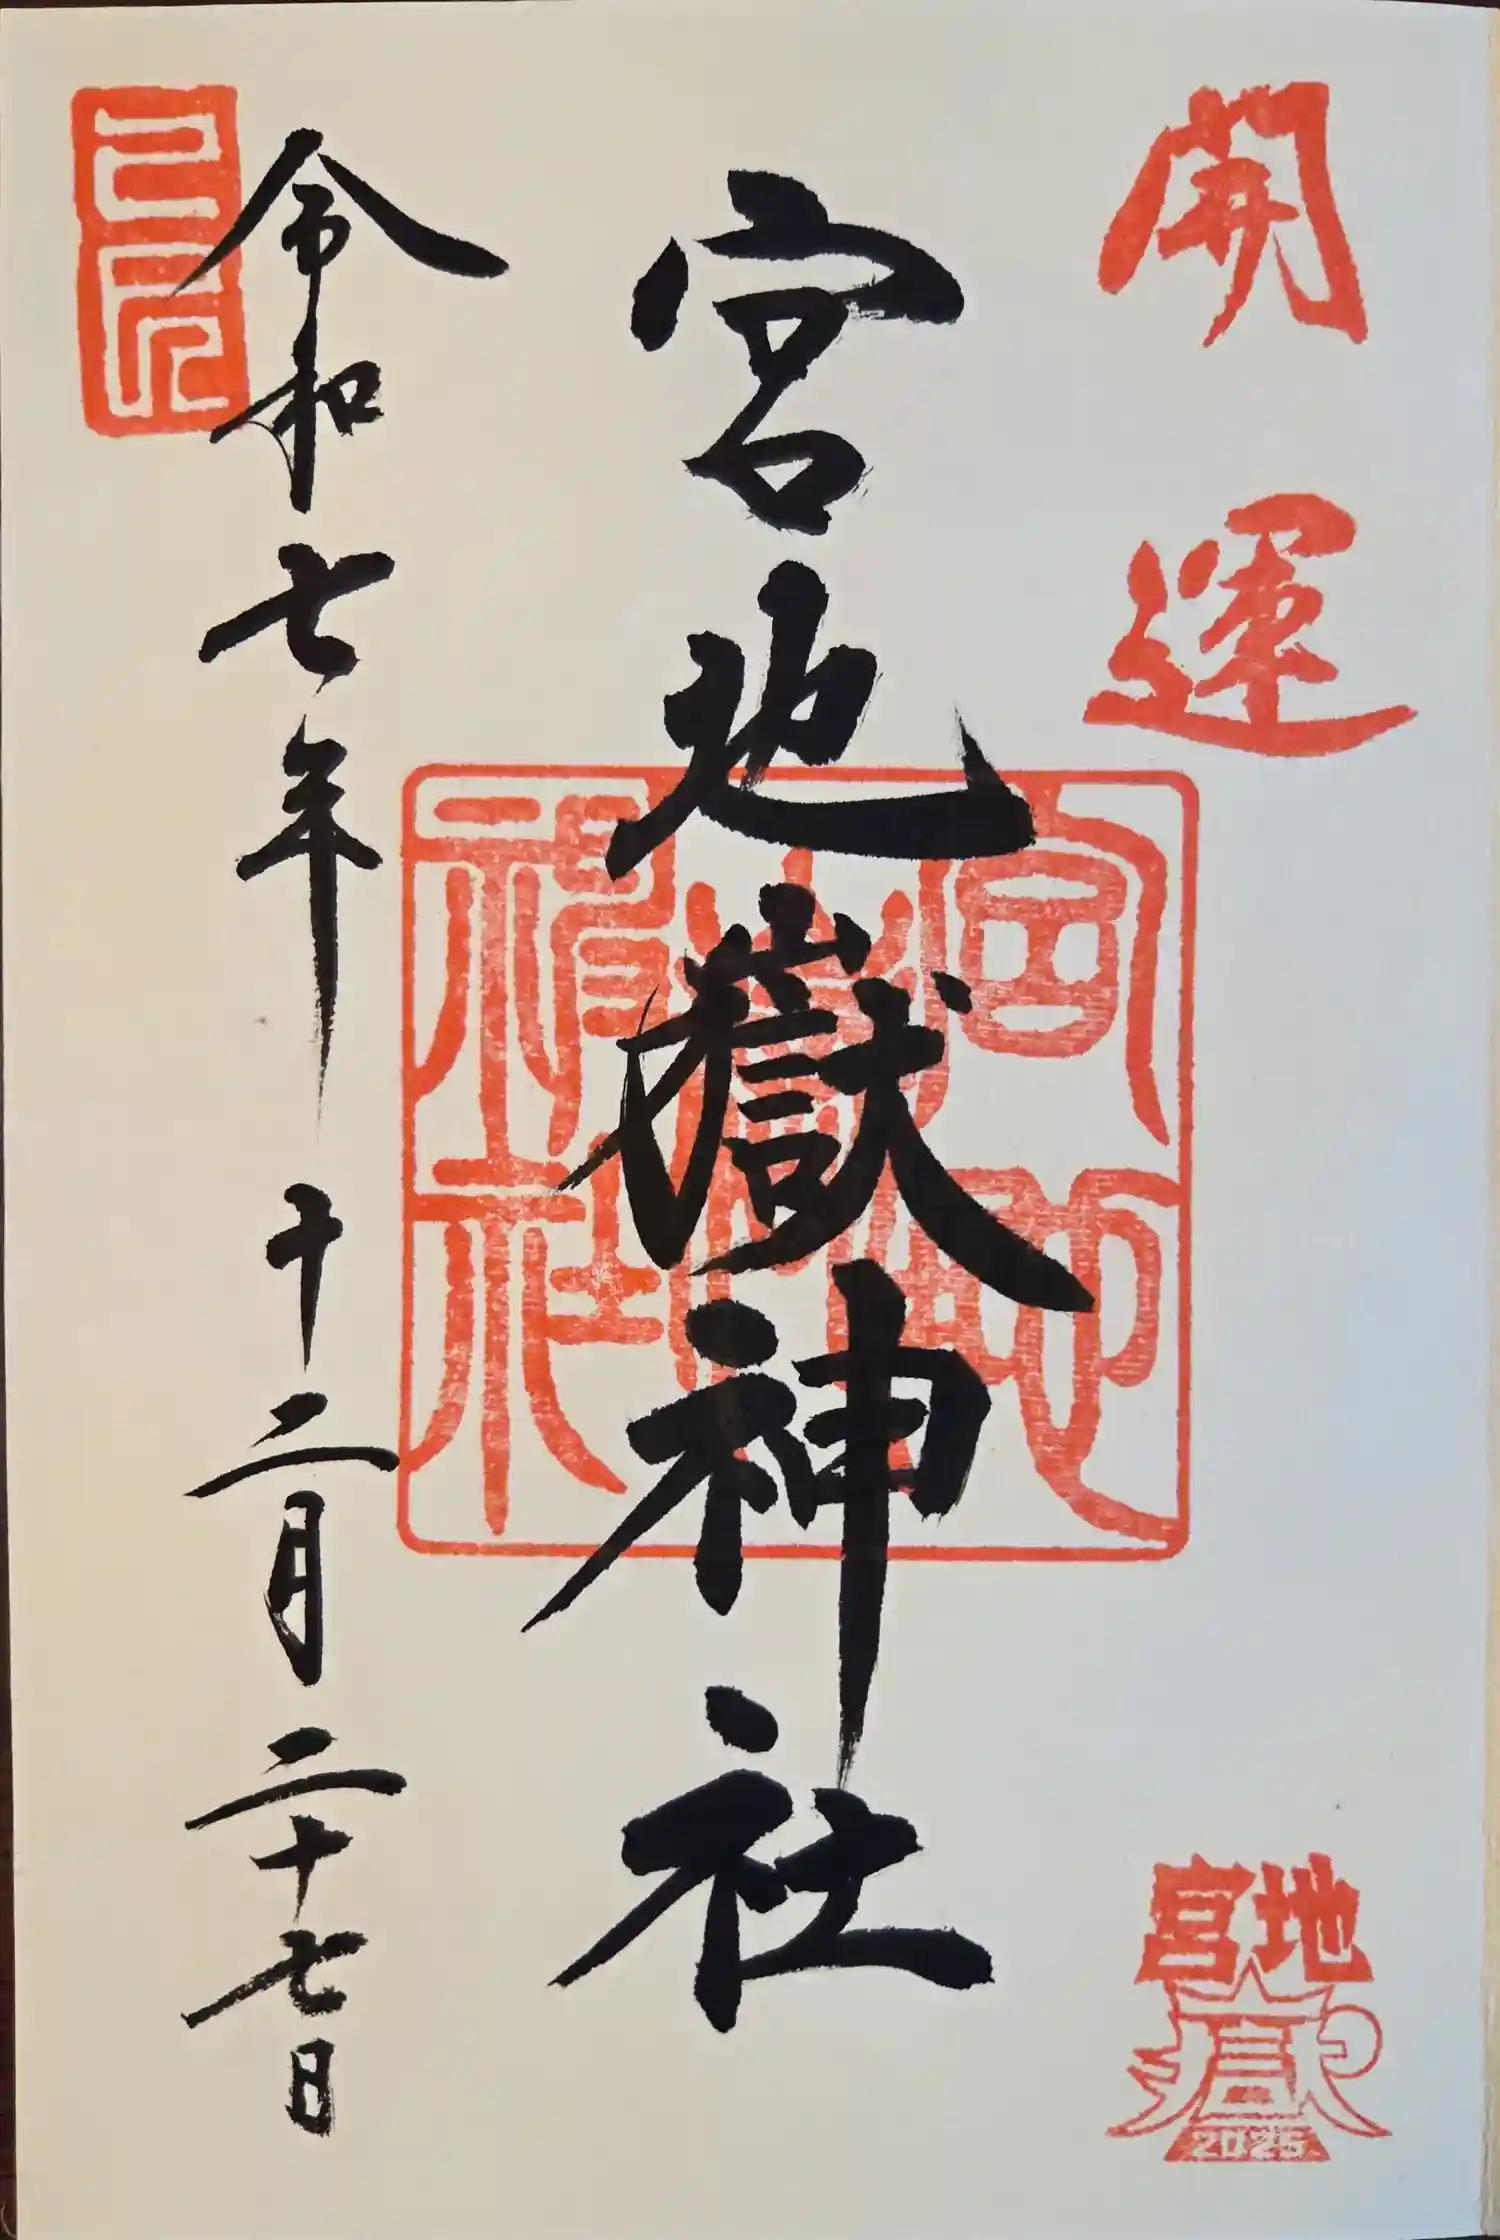 開運
宮地
嶽
2025
宮地嶽神社
宮地嶽神社
令和七年 十二月 二十七日